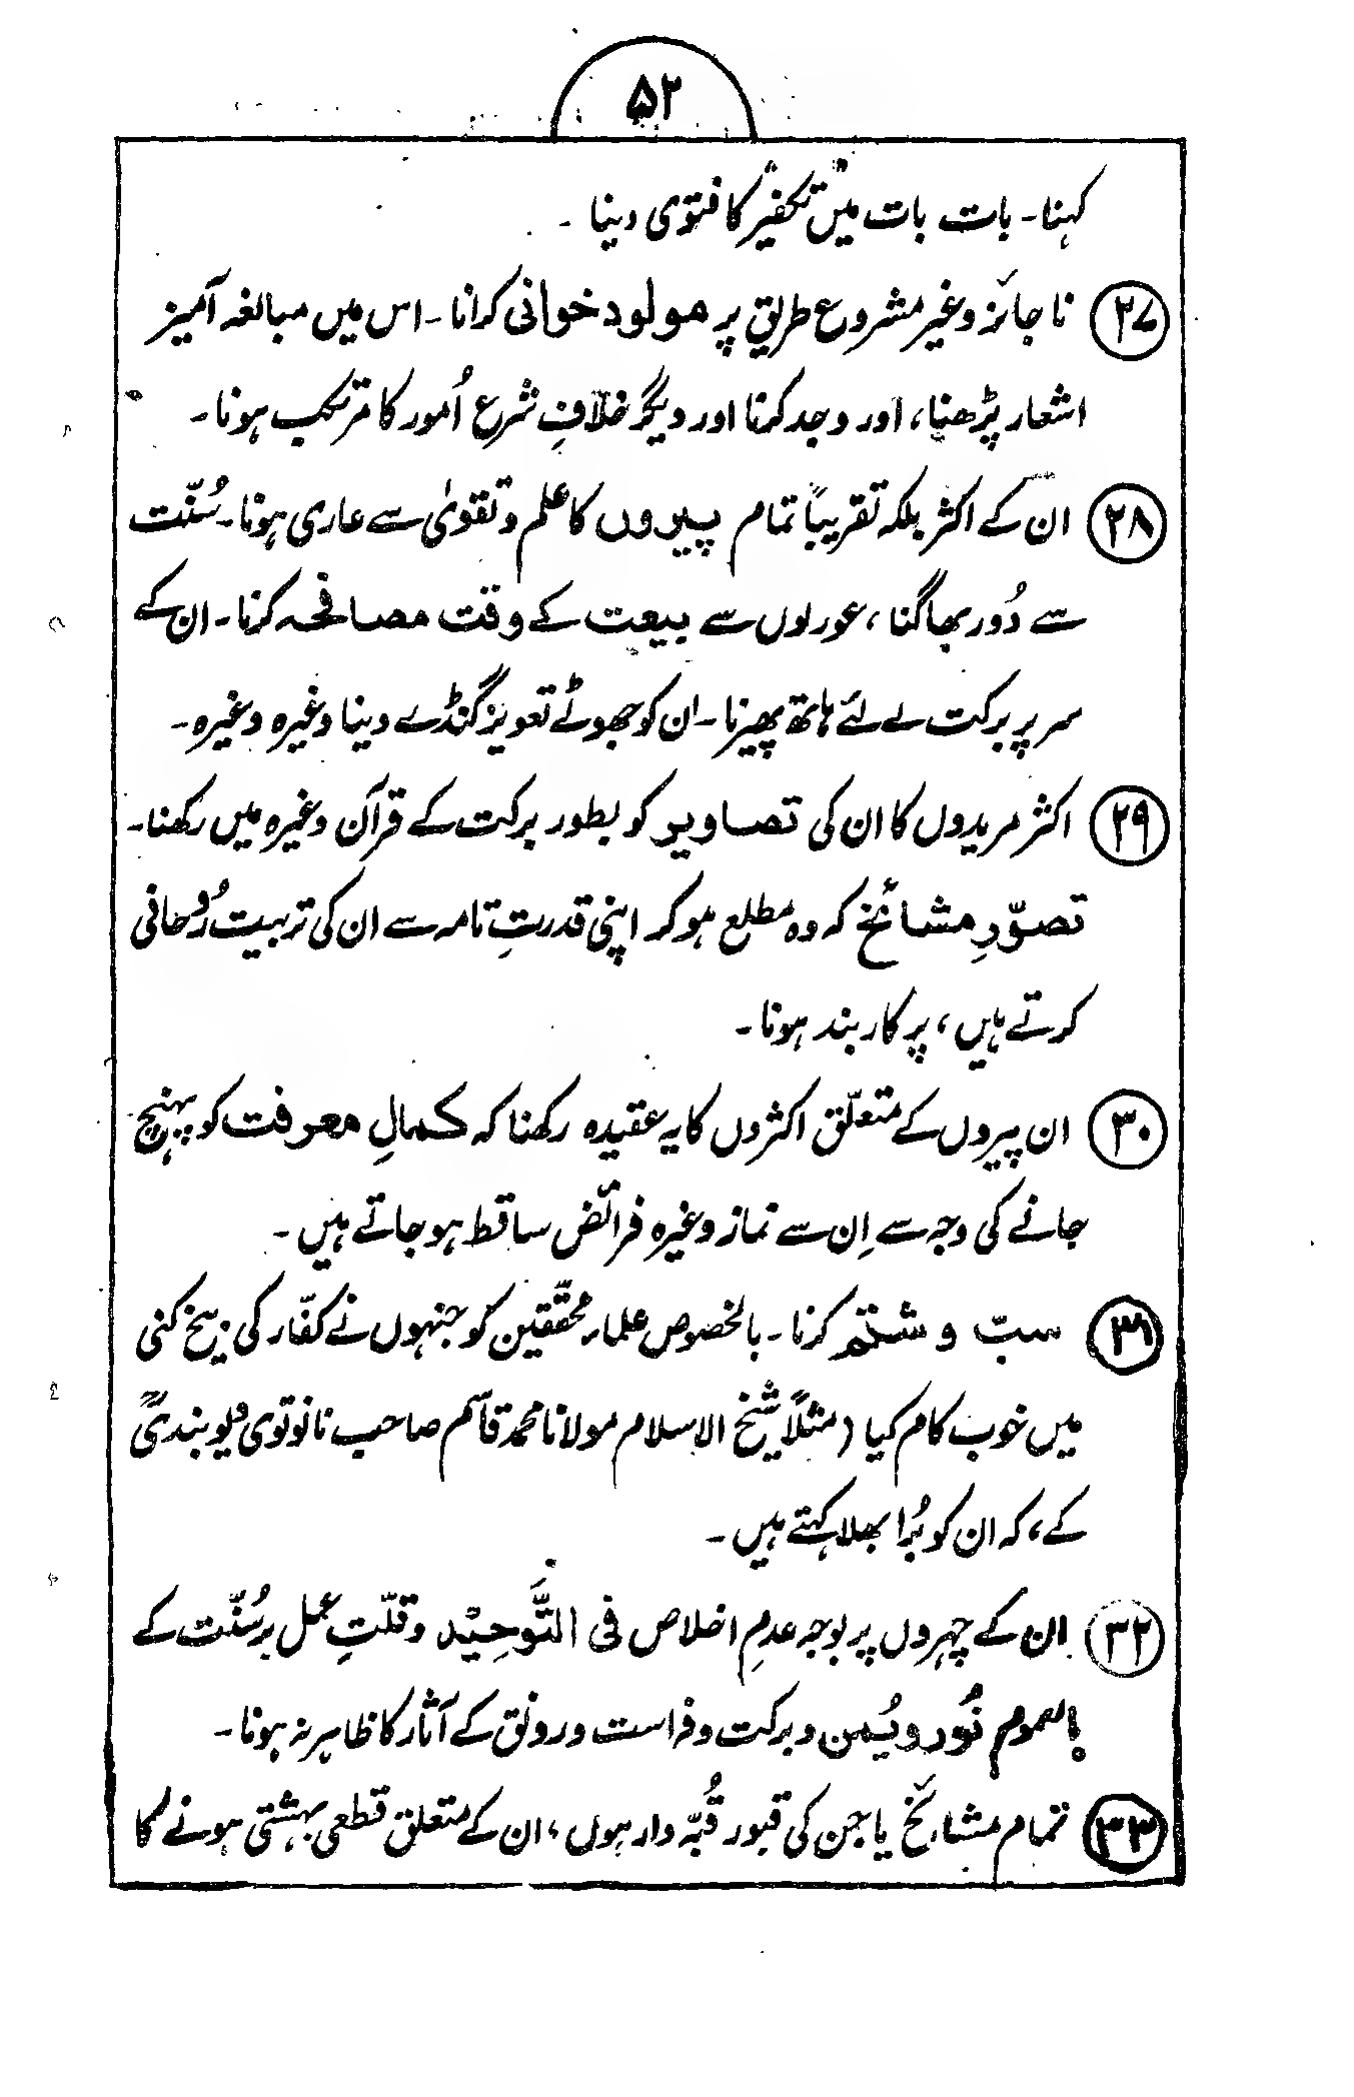 ۵۲
کہنا۔ بات بات میں تکفیر کا فتوی دینا ۔
۲۷ ناجائز و غیر مشروع طریق پر مولود خوانی کرانا۔ اس میں مبالغہ آمیز
اشعار پڑھنا، اور وجد کرنا اور دیگر خلافِ شرع اُمور کا مرتکب ہونا۔
۲۸ ان کے اکثر بلکہ تقریباً تمام پیروں کا علم و تقویٰ سے عاری ہونا۔ سُنّت
سے دُور بھاگنا، عورتوں سے بیعت کے وقت مصافحہ کرنا۔ ان کے
سر پر برکت کے لئے ہاتھ پھیرنا۔ ان کو جھوٹے تعویز گنڈے دینا وغیرہ وغیرہ۔
۲۹ اکثر مریدوں کا ان کی تصاویر کو بطور برکت کے قرآن وغیرہ میں رکھنا۔
تصوّرِ مشائخ کہ وہ مطلع ہو کر اپنی قدرتِ تامہ سے ان کی تربیت رُوحانی
کرتے ہیں، پر کاربند ہونا۔
۳۰ ان پیروں کے متعلّق اکثروں کا یہ عقیدہ رکھنا کہ کمالِ معرفت کو پہنچ
جانے کی وجہ سے اِن سے نماز وغیرہ فرائض ساقط ہو جاتے ہیں۔
۳۱ سبّ و شتم کرنا۔ بالخصوص علماء محقّقین کو جنہوں نے کفّار کی بیخ کنی
میں خوب کام کیا (مثلاً شیخ الاسلام مولانا محمد قاسم صاحب نانوتوی دیوبندیؒ
کے، کہ ان کو بُرا بھلا کہتے ہیں۔
۳۲ ان کے چہروں پر بوجہ عدمِ اخلاص فی التَّوحِیْد و قلّتِ عمل بر سُنّت کے
بالعموم نُور و یُمن و برکت و فراست و رونق کے آثار کا ظاہر نہ ہونا۔
۳۳ تمام مشائخ یا جن کی قبور قُبّہ دار ہوں، ان کے متعلق قطعی بہشتی ہونے کا